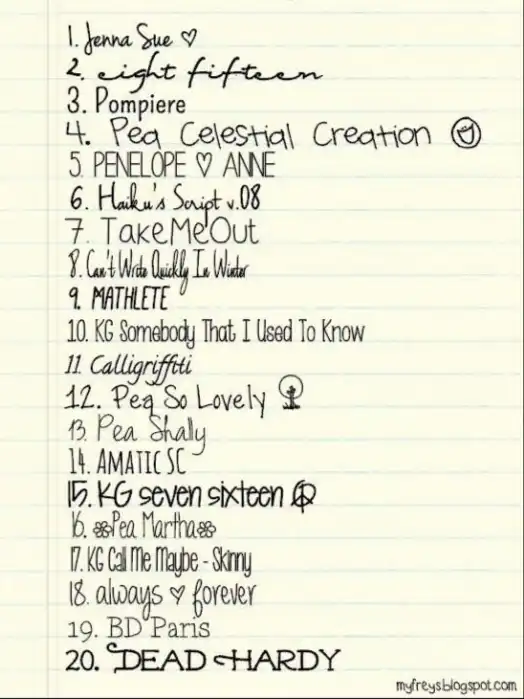 1. Jenna Sue ♡
2. eight fifteen
3. Pompiere
4. Pea Celestial Creation
5. PENELOPE ♡ ANNE
6. Haiku's Script v.08
7. TakeMeOut
8. Can't Write Quickly In Winter
9. MATHLETE
10. KG Somebody That I Used To Know
11. Calligriffiti
12. Pea So Lovely
13. Pea Shally
14. AMATIC SC
15. KG seven sixteen
16. Pea Martha
17. KG Call Me Maybe - Skinny
18. always ♡ forever
19. BD Paris
20. DEAD HARDY
myfreys.blogspot.com